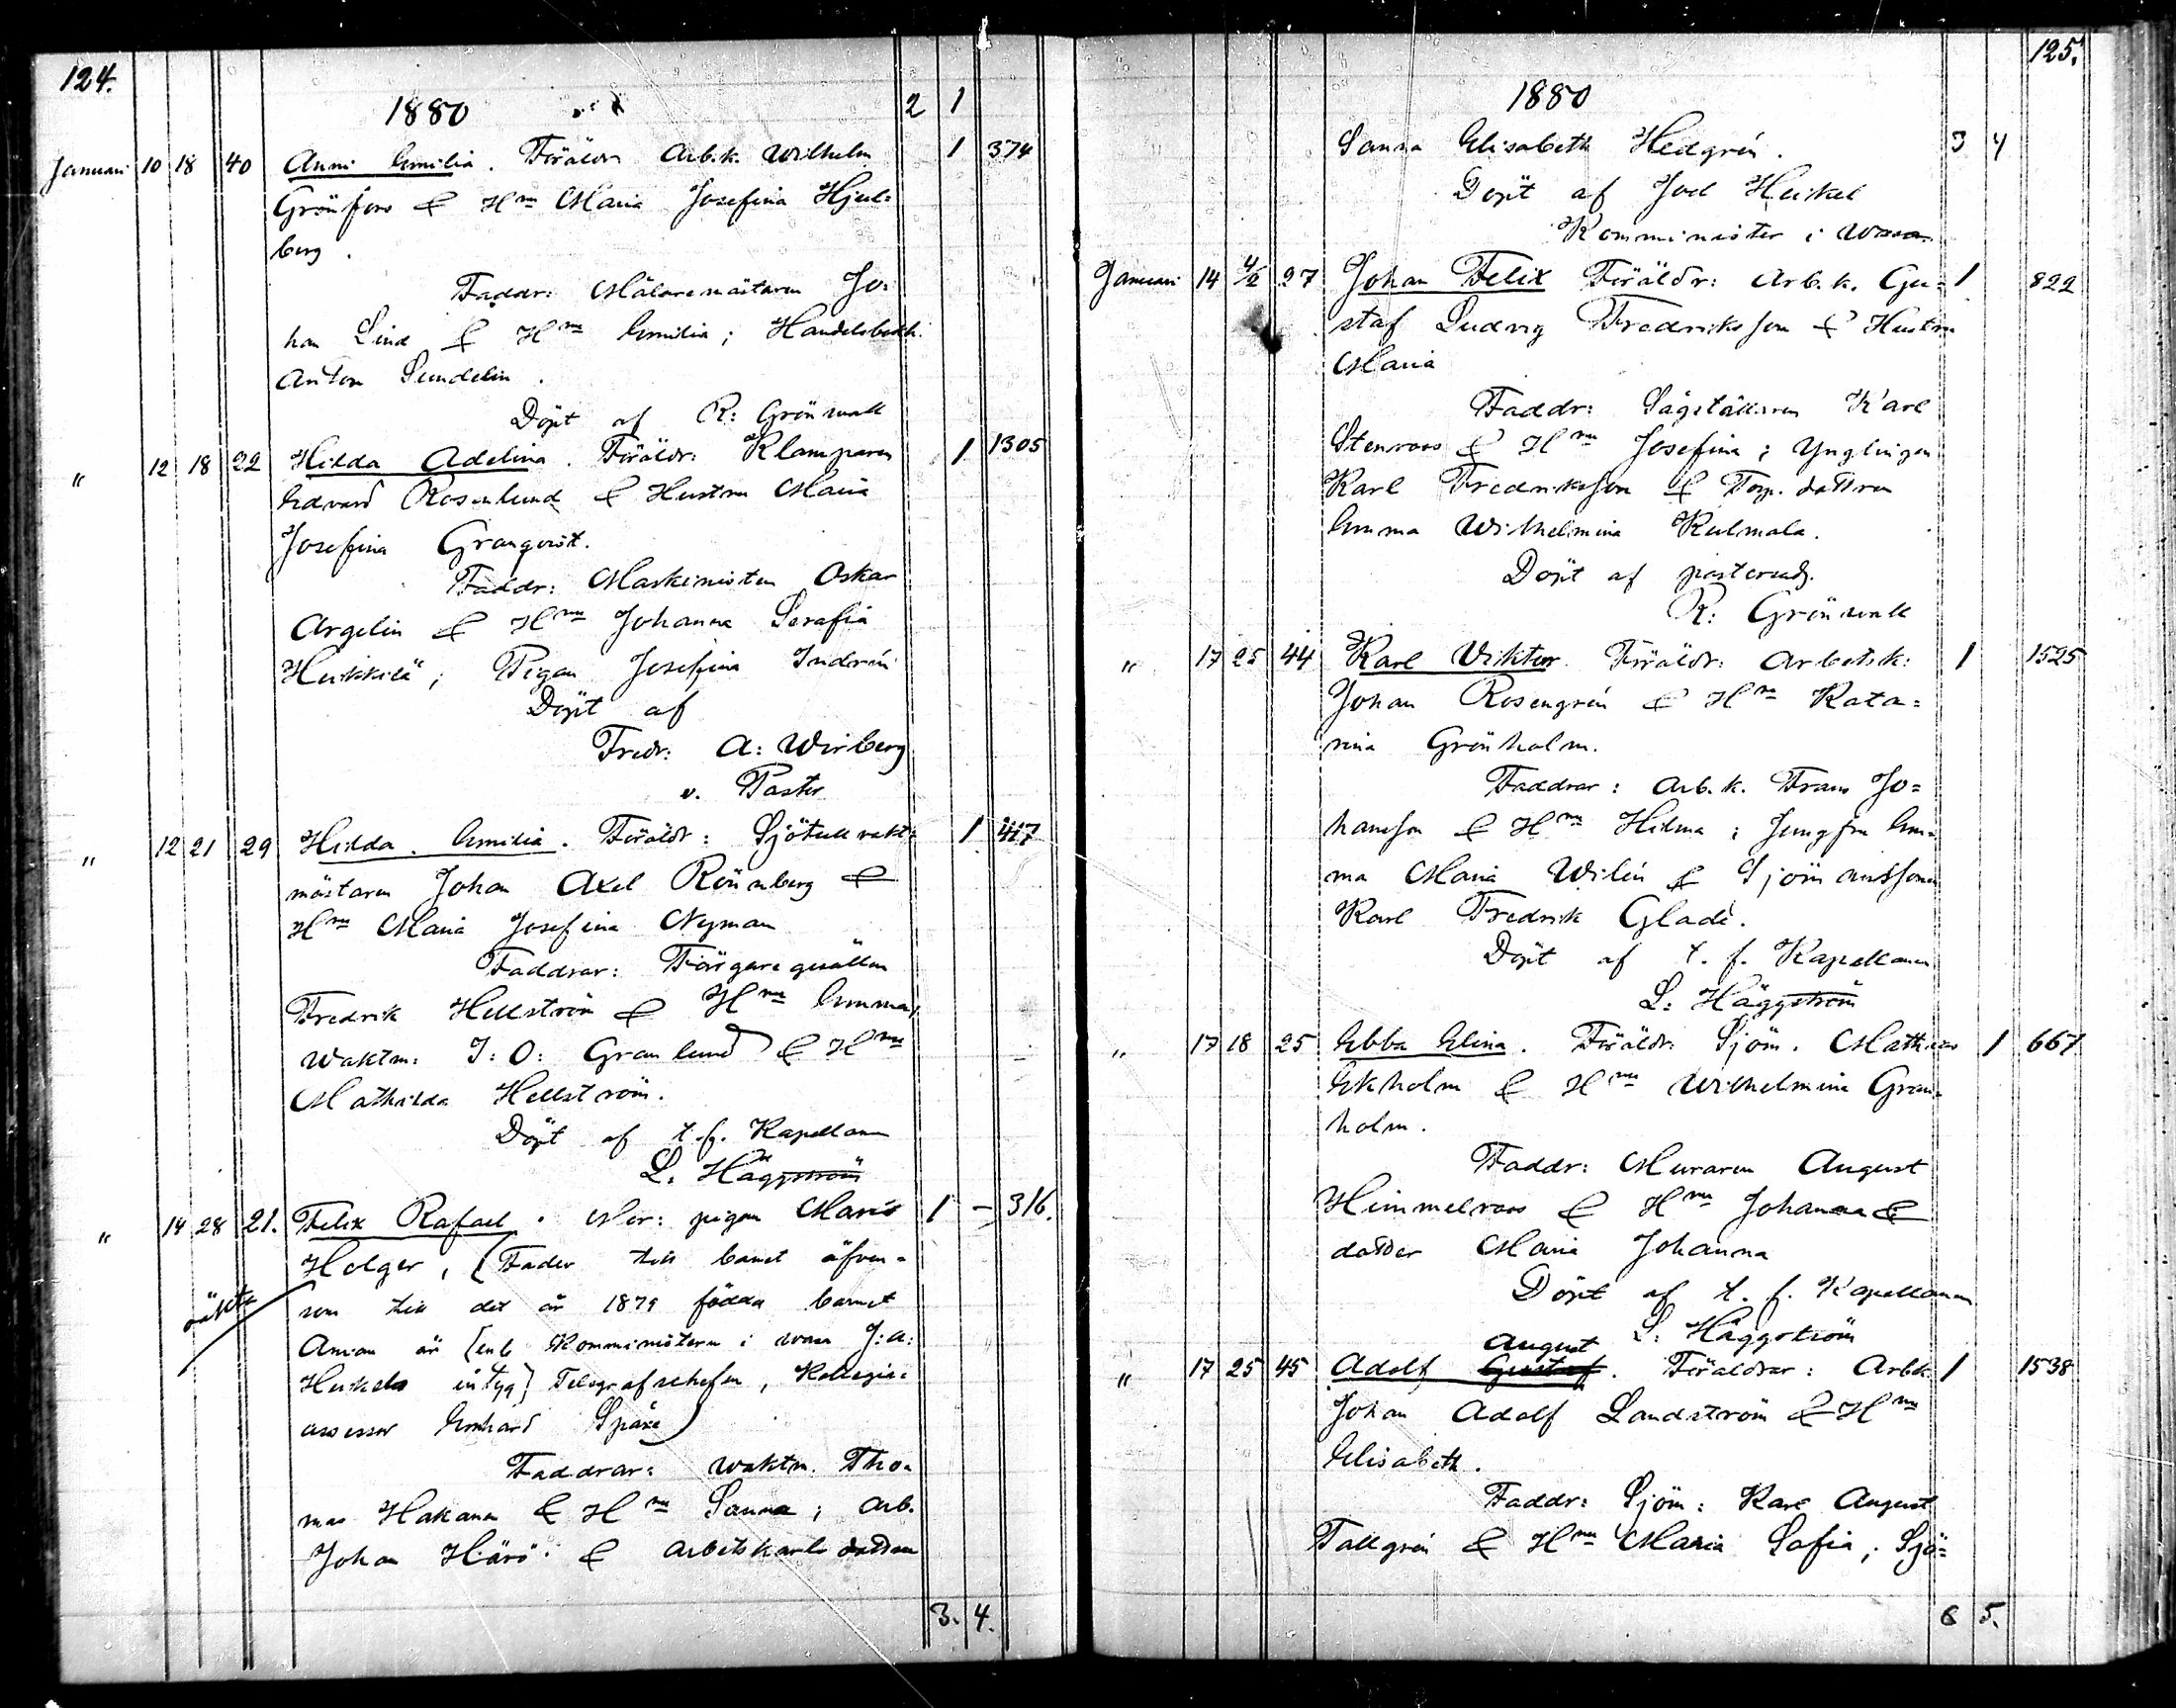 124.
1880 2 1
Januari 10 18 40 Anni Emilia. Föräldr Arb.k. Wilhelm 1 374
Grönfors & Hru Maria Josefina Hjul=
berg.
Faddr: Målaremästaren Jo=
han Lind & Hru Emilia; Handelsbetj.
Anton Sundelin.
Döpt af R: Grönwall
" 12 18 22 Hilda Adelina. Föräldr: Klamparen 1 1305
Edvard Rosenlund & Hustru Maria
Josefina Granqvist.
Faddr: Maskinisten Oskar
Argelin & Hru Johanna Serafia
Heikkilä; Pigan Josefina Indrén
Döpt af
Fredr: A: Wirberg
v. Pastor
" 12 21 29 Hilda Emilia. Föräldr: Sjötullvakt= 1 417
mästaren Johan Axel Rönnberg &
Hru Maria Josefina Nyman
Faddrar: Färgaregesällen
Fredrik Hellström & Hru Emma,
Waktm: J: O: Granlund & Hru
Mathilda Hellström.
Döpt af t.f. Kapellanen
L. Häggström
" 14 28 21. Felix Rafael. Mor: pigan Maria 1 – 316.
Holger, (Fader till barnet äfven-
oäkta som till det år 1879 födda barnet
Aman är [enl Kommínistern i Wasa J: A:
Heikels intyg] Telegrafchefen, Kollegie=
assessor Emhard Spåre)
Faddrar: waktm. Tho=
mas Hakana & Hru Sanna; Arb.
Johan Härö & Arbetskarls dottren
3. 4.
125.
1880
Sanna Elisabeth Hedgrén. 3 4
Döpt af Joel Heikel
Komminister i Wasa
Januari 14 4/2 27 Johan Felix Föräldr: Arb.k. Gu= 1 822
staf Ludvig Fredriksson & Hustru
Maria
Faddr: Sågställaren Karl
Stenroos & Hru Josefina; Ynglingen
Karl Fredriksson & Torp. dottren
Emma Wilhelmina Kulmala.
Döpt af pastorsadj.
R: Grönwall
" 17 25 44 Karl Viktor Föräldr: Arbetsk: 1 1525
Johan Rosengrén & Hru Kata=
rina Grönholm.
Faddrar: Arb.k. Frans Jo=
hansson & Hru Hilma; Jungfru Em=
ma Maria Wilén & Sjömansonen
Karl Fredrik Glade.
Döpt af t. f. Kapellanen
L: Häggström
" 17 18 25 Ebba Elina. Föräldr: Sjöm. Mathias 1 667
Ekholm & Hru Wilhelmina Gran=
holm.
Faddr: Muraren August
Himmelroos & Hru Johanna &
dotter Maria Johanna
Döpt af t. f. Kapellanen
L: Häggström
August
" 17 25 45 Adolf Gustaf. Föräldrar: Arbk 1 1538
Johan Adolf Landström & Hru
Elisabeth.
Faddr: Sjöm: Karl August
Tallgrén & Hru Maria Sofia; Sjö=
6 5.